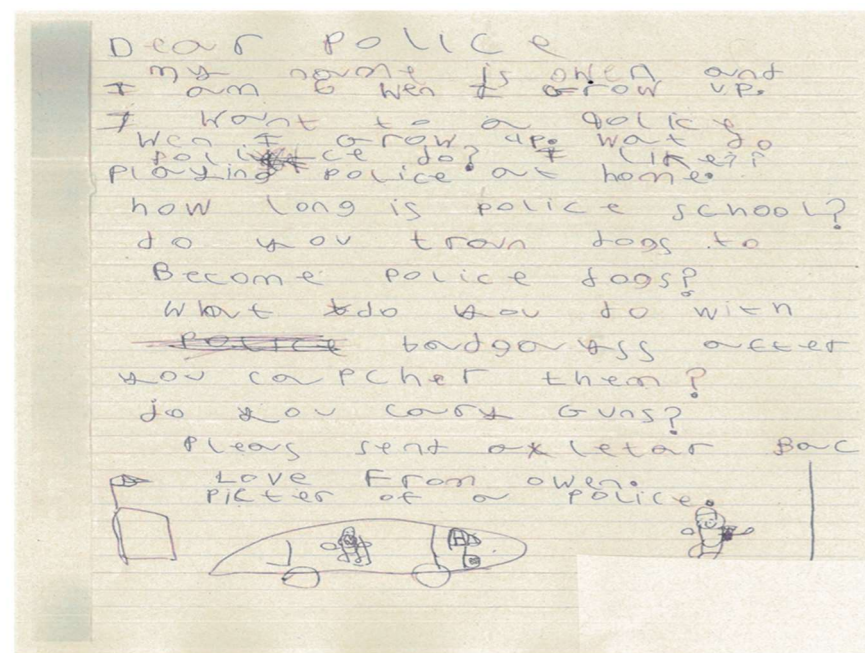 Dear police
my name is owen and
I am 6 wen I grow up.
I want to a police
wen I grow up. wat do
police do? I like??
playing police at home.
how long is police school?
do you train dogs to
Become police dogs?
what do you do with
police badgayss after
you capcher them?
do you cary Guns?
Pleas sent a letar Bac
Love From owen.
picter of a police.